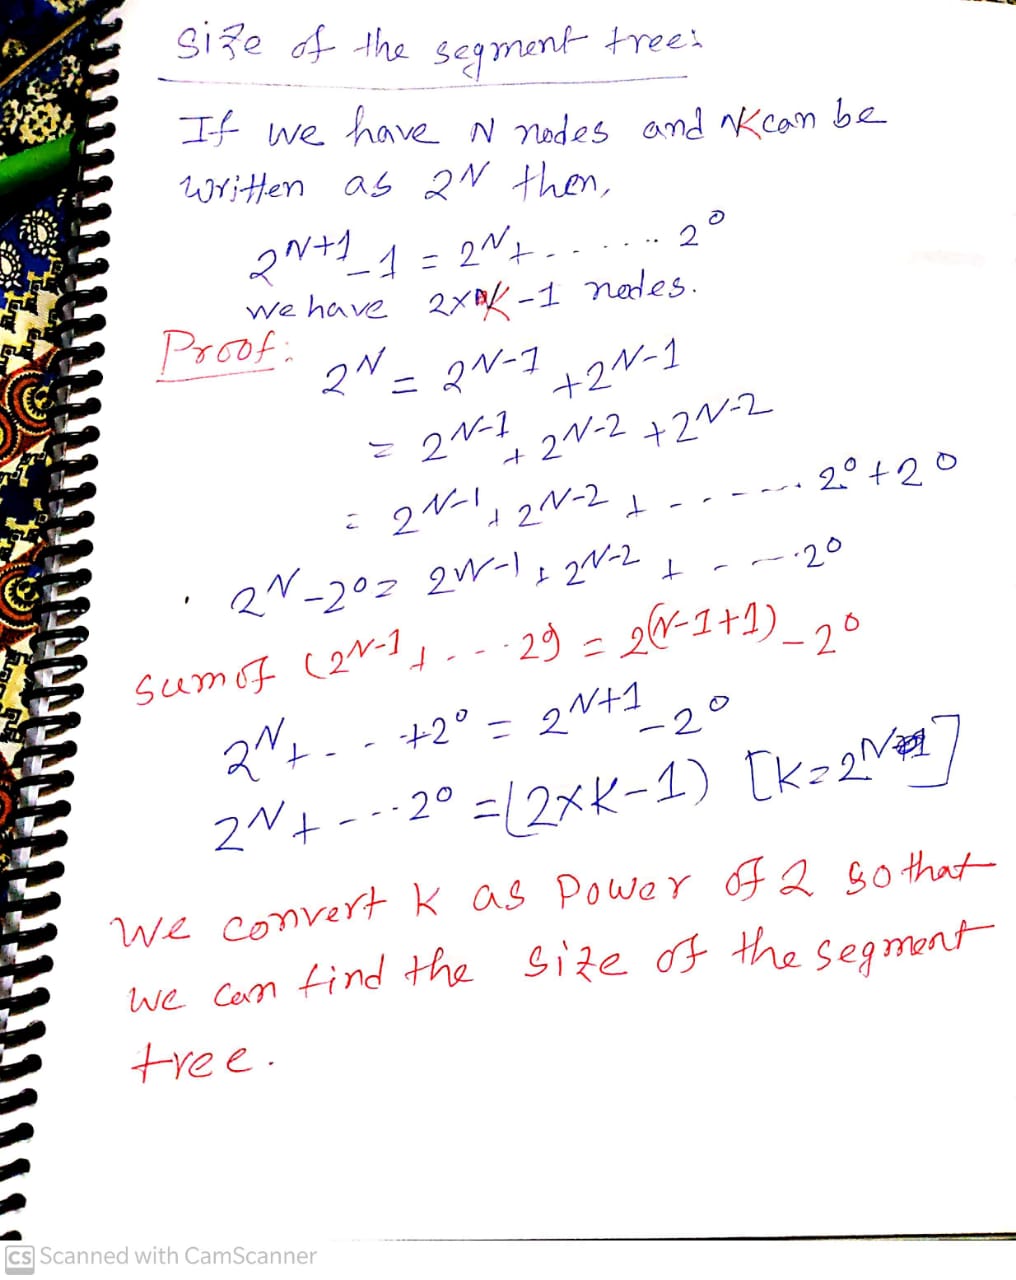 Size of the segment tree:
If we have N nodes and K can be
written as 2^N then,
2^N+1 - 1 = 2^N + ........ 2^0
we have 2×K-1 nodes.
Proof:
2^N = 2^N-1 + 2^N-1
= 2^N-1 + 2^N-2 + 2^N-2
= 2^N-1 + 2^N-2 + ........ 2^0 + 2^0
2^N - 2^0 = 2^N-1 + 2^N-2 + ---- 2^0
sum of (2^N-1 + ---- 2^0) = 2^(N-1+1) - 2^0
2^N + -- +2^0 = 2^N+1 - 2^0
2^N + ---- 2^0 = (2×K-1) [K=2^N]
We convert K as Power of 2 so that
we can find the size of the segment
tree.
CS Scanned with CamScanner